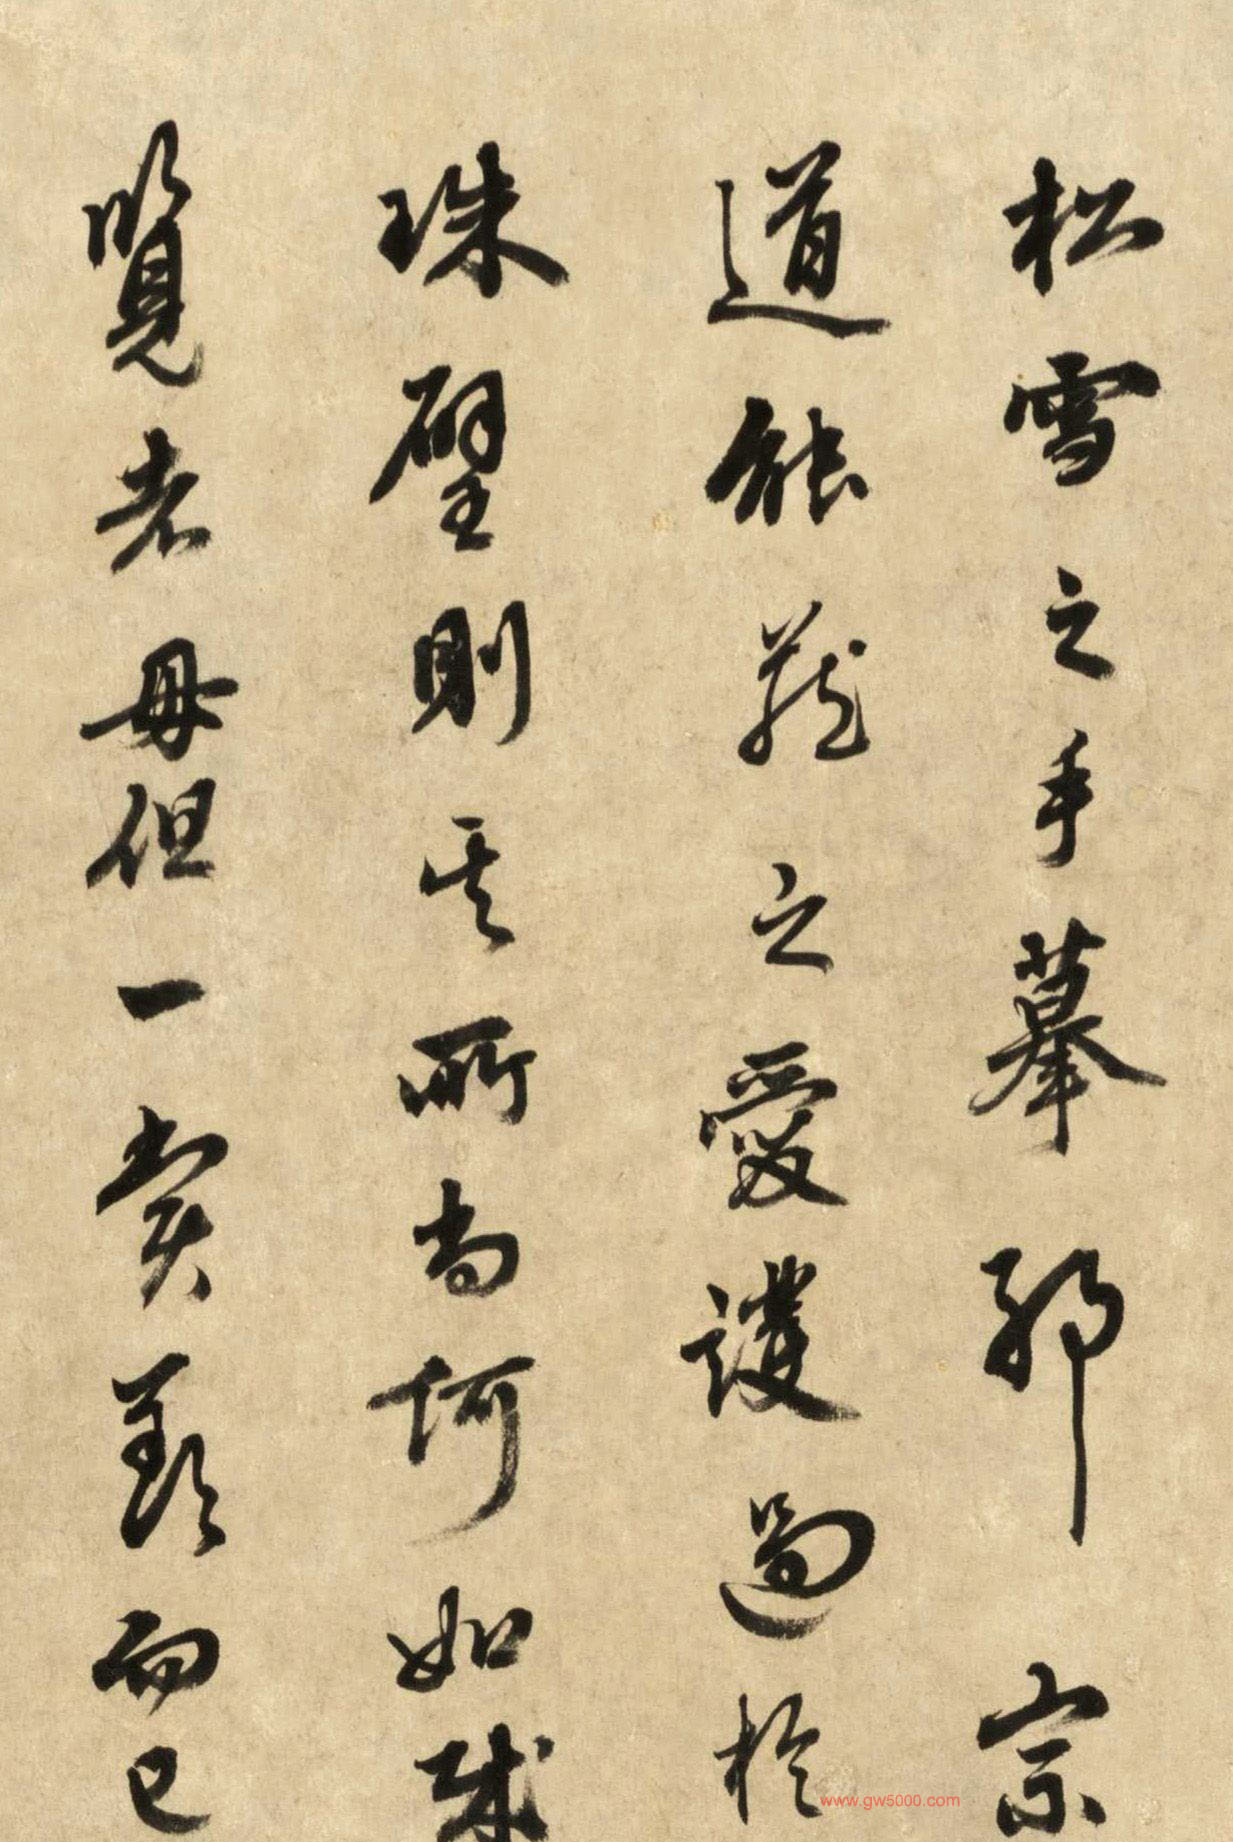 松雪之手摹耶宗
道能蔵之愛護過於
珠璧則其所尚何如哉
覽者毋但一賞歎而已
www.gw5000.com